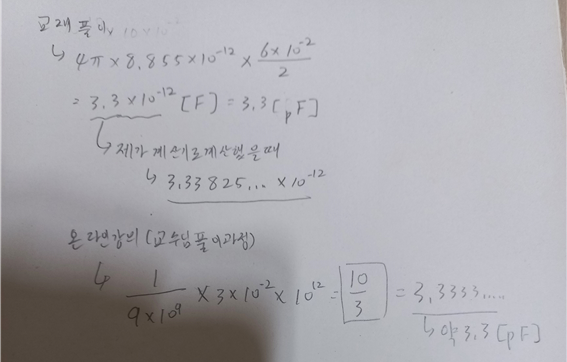 교재 풀이
↳ 4π × 8.855 × 10⁻¹² × 6×10⁻²/2
= 3.3 × 10⁻¹² [F] = 3.3 [pF]
↳ 제가 계산기로 계산했을때
↳ 3.33825... × 10⁻¹²
온라인강의 (교수님 풀이과정)
↳ 1/9×10⁹ × 3×10⁻² × 10¹² = 10/3 = 3.3333....
↳ 약 3.3 [pF]